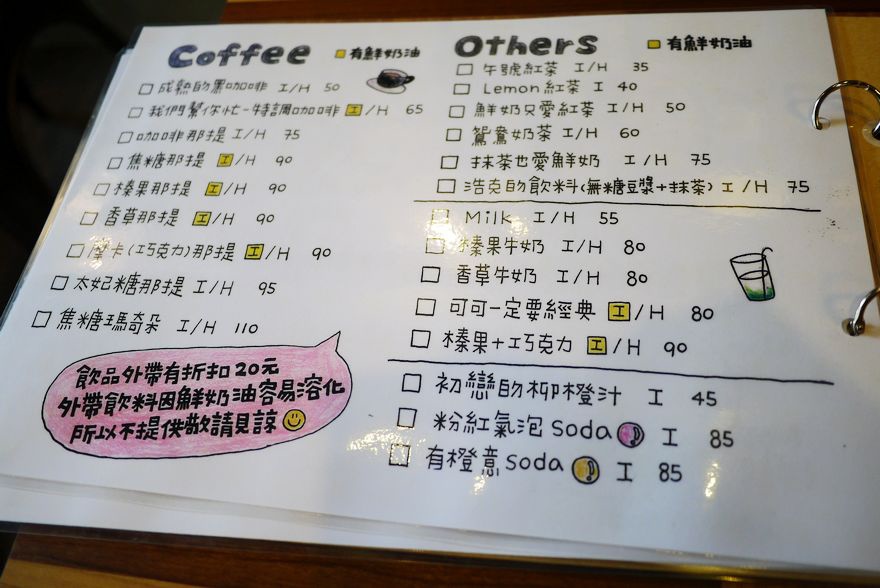 Coffee 有鮮奶油
成熟的黑咖啡 I/H 50
我們幫你忙-特調咖啡 I/H 65
咖啡那提 I/H 75
焦糖那提 I/H 90
榛果那提 I/H 90
香草那提 I/H 90
摩卡(巧克力)那提 I/H 90
太妃糖那提 I/H 95
焦糖瑪奇朵 I/H 110
飲品外帶有折扣20元
外帶飲料因鮮奶油容易溶化
所以不提供敬請見諒
Others 有鮮奶油
午號紅茶 I/H 35
Lemon紅茶 I 40
鮮奶只愛紅茶 I/H 50
鴛鴦奶茶 I/H 60
抹茶也愛鮮奶 I/H 75
浩克的飲料(無糖豆漿+抹茶) I/H 75
Milk I/H 55
榛果牛奶 I/H 80
香草牛奶 I/H 80
可可一定要經典 I/H 80
榛果+巧克力 I/H 90
初戀的柳橙汁 I 45
粉紅氣泡Soda I 85
有橙意Soda I 85